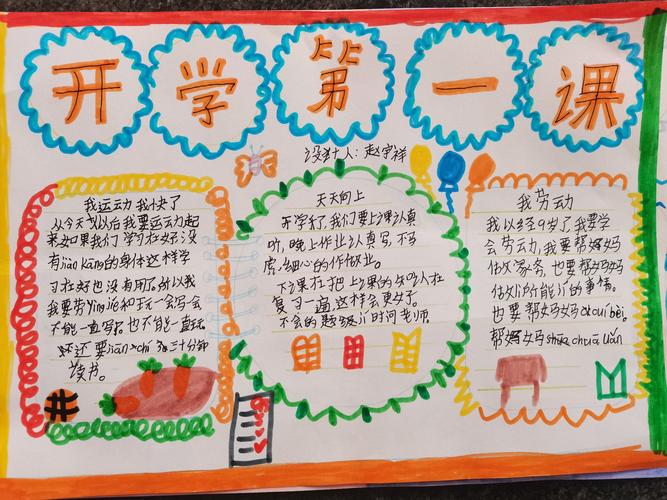 开学第一课
设计人：赵宇祥
我运动 我快了
从今天以后我要运动起
来如果我们学习在好没
有jiàn kāng的身体这样学
习在好也没有用了所以我
我要劳yìng jié和玩一会写一会
不能一直写也不能一直玩
还要jiān chí 三十分钟
读书。
天天向上
开学了，我们要上课认真
听，晚上作业认真写，不马
虎，细心的作作业。
下课在把上课的知识在
复习一遍，这样会更好。
不会的题 时间老师
我劳动
我以经9岁了，我要学
会劳动，我要帮妈妈
做家务，也要帮妈妈
做 所能 的事情。
也要帮妈妈 bèi，
帮妈妈shuā chuā uǎn